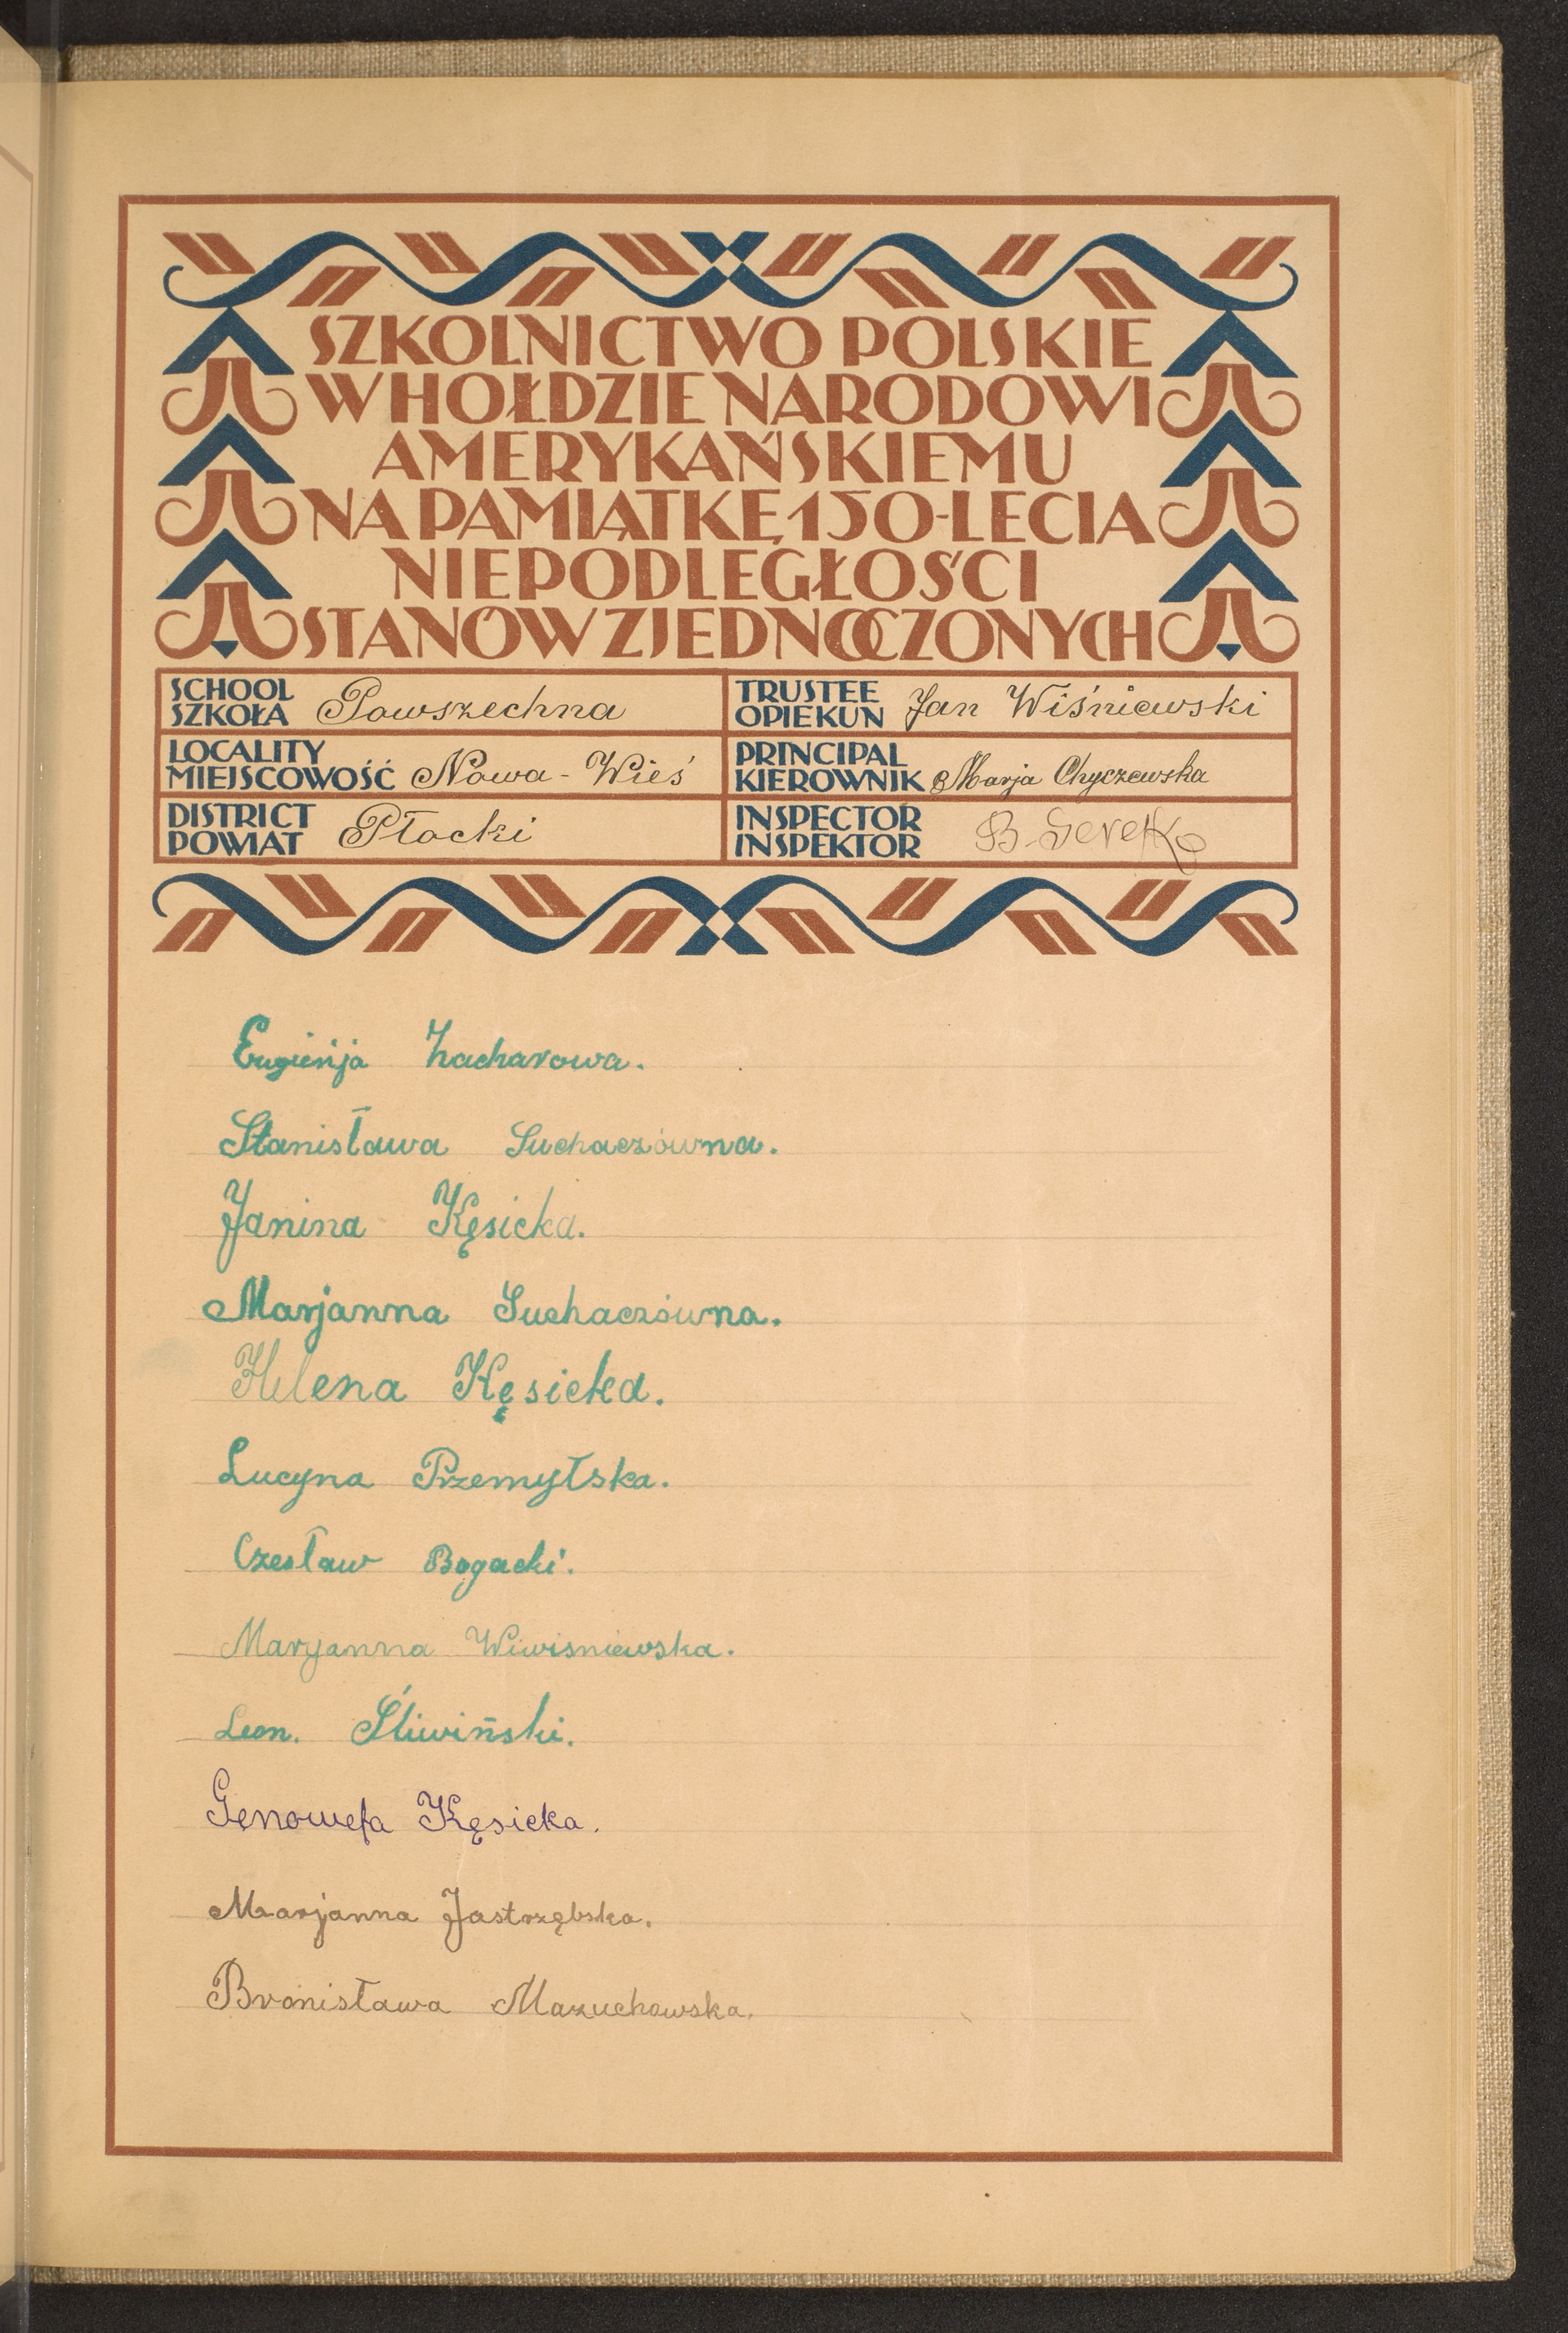 SZKOLNICTWO POLSKIE
W HOŁDZIE NARODOWI
AMERYKAŃSKIEMU
NA PAMIĄTKĘ 150-LECIA
NIEPODLEGŁOŚCI
STANÓW ZJEDNOCZONYCH
SCHOOL
SZKOŁA Powszechna
TRUSTEE
OPIEKUN Jan Wiśniewski
LOCALITY
MIEJSCOWOŚĆ Nowa-Wieś
PRINCIPAL
KIEROWNIK Marja Chyczewska
DISTRICT
POWIAT Płocki
INSPECTOR
INSPEKTOR B.
Eugienja Zacharowa.
Stanisława Suchaczówna.
Janina Kęsicka.
Marjanna Suchaczówna.
Helena Kęsicka.
Lucyna Przemyłska.
Czesław Bogacki.
Maryanna Wiwisniewska.
Leon. Śliwiński.
Genowefa Kęsicka.
Marjanna Jastrzębska.
Bronisława Mazuchowska.